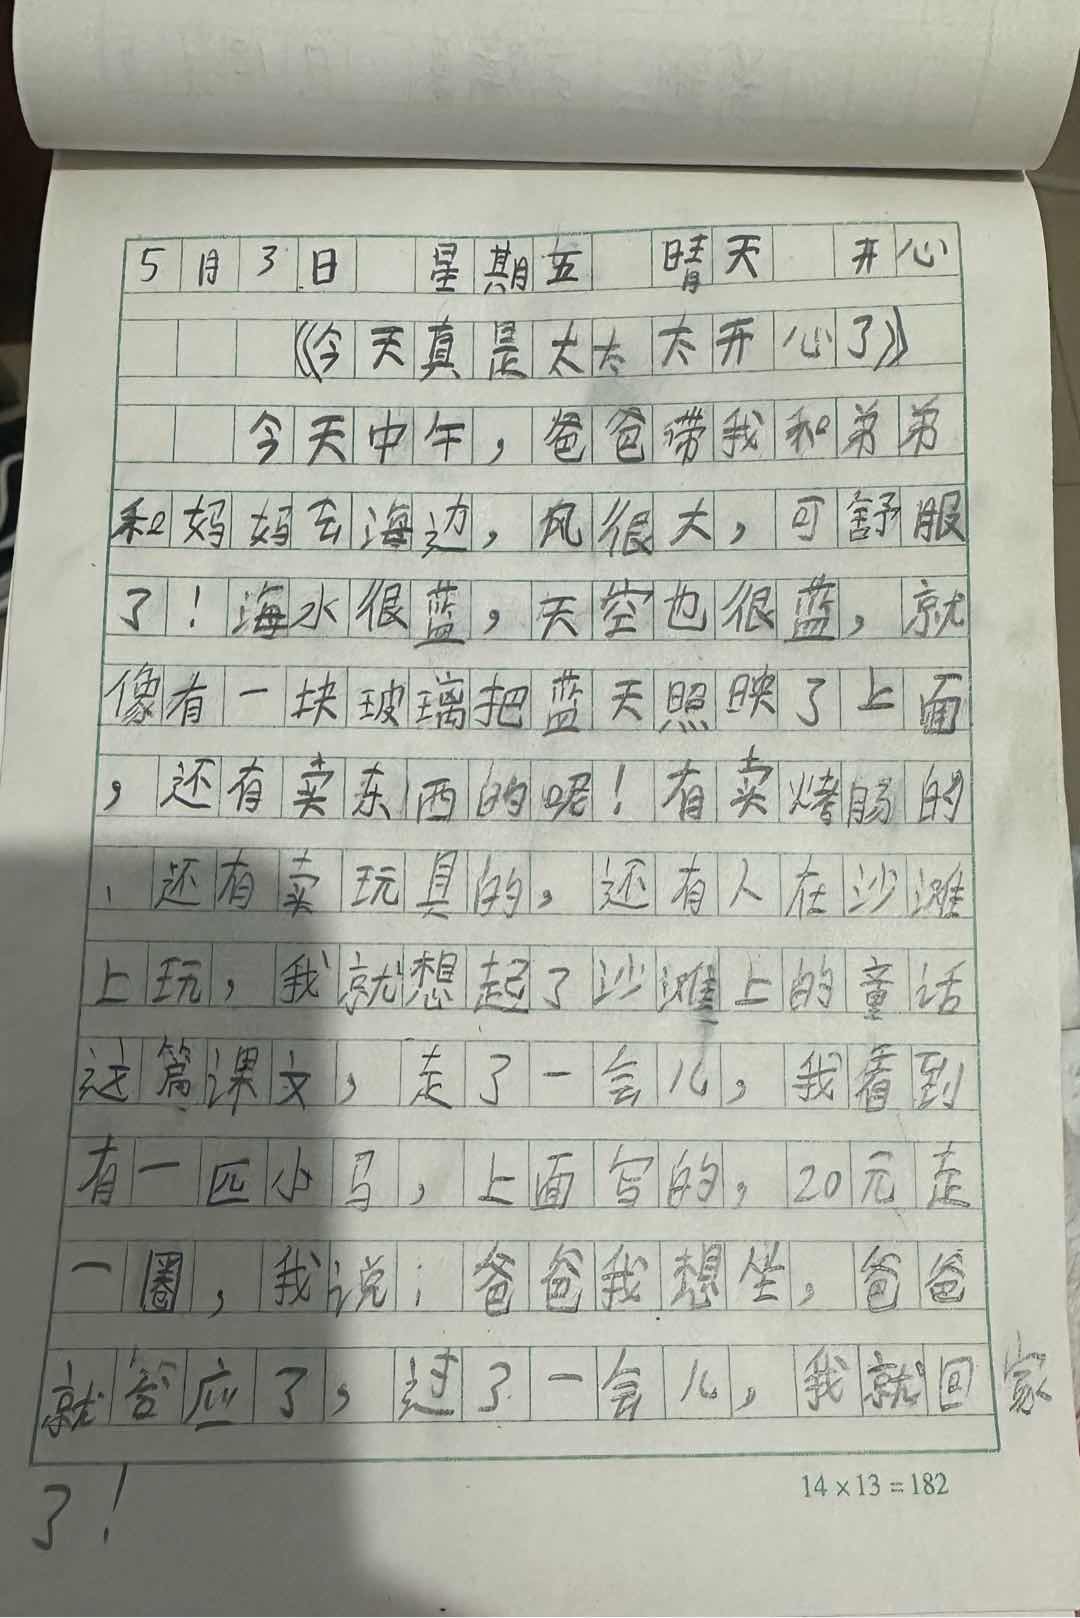 5月3日 星期五 晴天 开心
《今天真是太太太开心了》
今天中午，爸爸带我和弟弟
和妈妈去海边，风很大，可舒服
了！海水很蓝，天空也很蓝，就
像有一块玻璃把蓝天照映了上面
，还有卖东西的呢！有卖烤肠的
、还有卖玩具的，还有人在沙滩
上玩，我就想起了沙滩上的童话
这篇课文，走了一会儿，我看到
有一匹小马，上面写的，20元走
一圈，我说：爸爸我想坐，爸爸
就答应了，过了一会儿，我就回家
了！
14×13=182